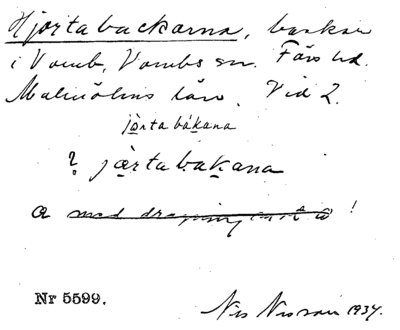 Hjortabackarna, backar
i Vomb, Vombs sn. Färs hd.
Malmöhus län. Vid 2.
jòrta bákana
? jòrtabakana
a med dragning mot å !
Nr 5599.
Nils Nilsson 1934.